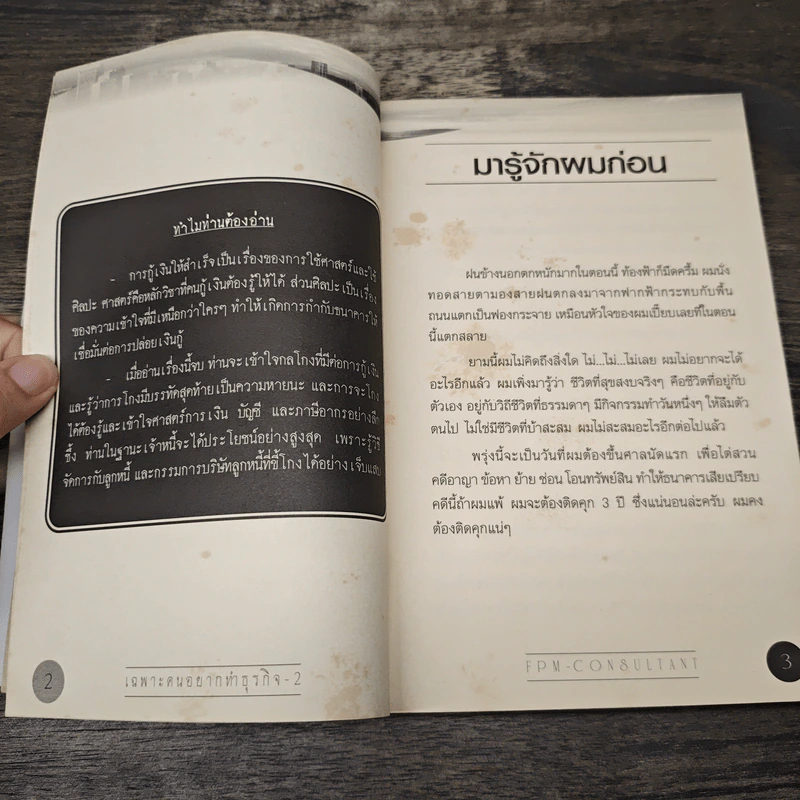 ทำไมท่านต้องอ่าน
- การกู้เงินให้สำเร็จเป็นเรื่องของการใช้ศาสตร์และใช้
ศิลปะ ศาสตร์คือหลักวิชาที่คนกู้เงินต้องรู้ให้ได้ ส่วนศิลปะเป็นเรื่อง
ของความเข้าใจที่มีเหนือกว่าใครๆ ทำให้เกิดการกำกับธนาคารให้
เชื่อมั่นต่อการปล่อยเงินกู้
- เมื่ออ่านเรื่องนี้จบ ท่านจะเข้าใจกลโกงที่มีต่อการกู้เงิน
และรู้ว่าการโกงมีบรรทัดสุดท้ายเป็นความหายนะ และการจะโกง
ได้ต้องรู้และเข้าใจศาสตร์การเงิน บัญชี และภาษีอากรอย่างลึก
ซึ้ง ท่านในฐานะเจ้าหนี้จะได้ประโยชน์อย่างสูงสุด เพราะรู้วิธี
จัดการกับลูกหนี้ และกรรมการบริษัทลูกหนี้ที่ขี้โกงได้อย่างเจ็บแสบ
2
เฉพาะคนอยากทำธุรกิจ-2
มารู้จักผมก่อน
ฝนข้างนอกตกหนักมากในตอนนี้ ท้องฟ้าก็มืดครึ้ม ผมนั่ง
ทอดสายตามองสายฝนตกลงมาจากฟากฟ้ากระทบกับพื้น
ถนนแตกเป็นฟองกระจาย เหมือนหัวใจของผมเปี๊ยบเลยที่ในตอน
นี้แตกสลาย
ยามนี้ผมไม่คิดถึงสิ่งใด ไม่...ไม่...ไม่เลย ผมไม่อยากจะได้
อะไรอีกแล้ว ผมเพิ่งมารู้ว่า ชีวิตที่สุขสงบจริงๆ คือชีวิตที่อยู่กับ
ตัวเอง อยู่กับวิถีชีวิตที่ธรรมดาๆ มีกิจกรรมทำวันหนึ่งๆ ให้ลืมตัว
ตนไป ไม่ใช่มีชีวิตที่บ้าสะสม ผมไม่สะสมอะไรอีกต่อไปแล้ว
พรุ่งนี้จะเป็นวันที่ผมต้องขึ้นศาลนัดแรก เพื่อไต่สวน
คดีอาญา ข้อหา ย้าย ซ่อน โอนทรัพย์สิน ทำให้ธนาคารเสียเปรียบ
คดีนี้ถ้าผมแพ้ ผมจะต้องติดคุก 3 ปี ซึ่งแน่นอนล่ะครับ ผมคง
ต้องติดคุกแน่ๆ
FPM-CONSULTANT
3